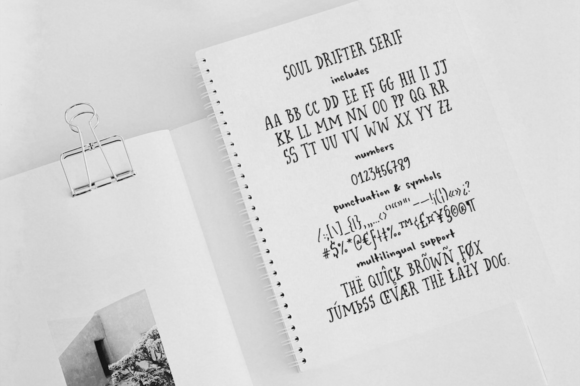 SOUL DRIFTER SERIF
includes
AA BB CC DD EE FF GG HH II JJ
KK LL MM NN OO PP QQ RR
SS TT UU VV WW XX YY ZZ
numbers
0123456789
punctuation & symbols
multilingual support
THË QUÎÇK BRÕWÑ ƑØX
JÚMÞSS ŒVÆR THÈ ŁÅZY DOG.